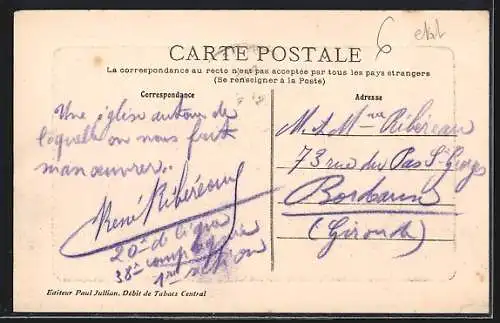 CARTE POSTALE
La correspondance au recto n'est pas acceptée par tous les pays étrangers
(Se renseigner à la Poste)
Correspondance
Adresse
Une église autour de
laquelle on nous fait
manœuvrer..
René Ribéreau
20me de ligne
38e compagnie
1re section
M. & Mme Ribéreau
73 rue du Pas St Georges
Bordeaux
(Gironde)
Editeur Paul Jullian, Débit de Tabacs Central